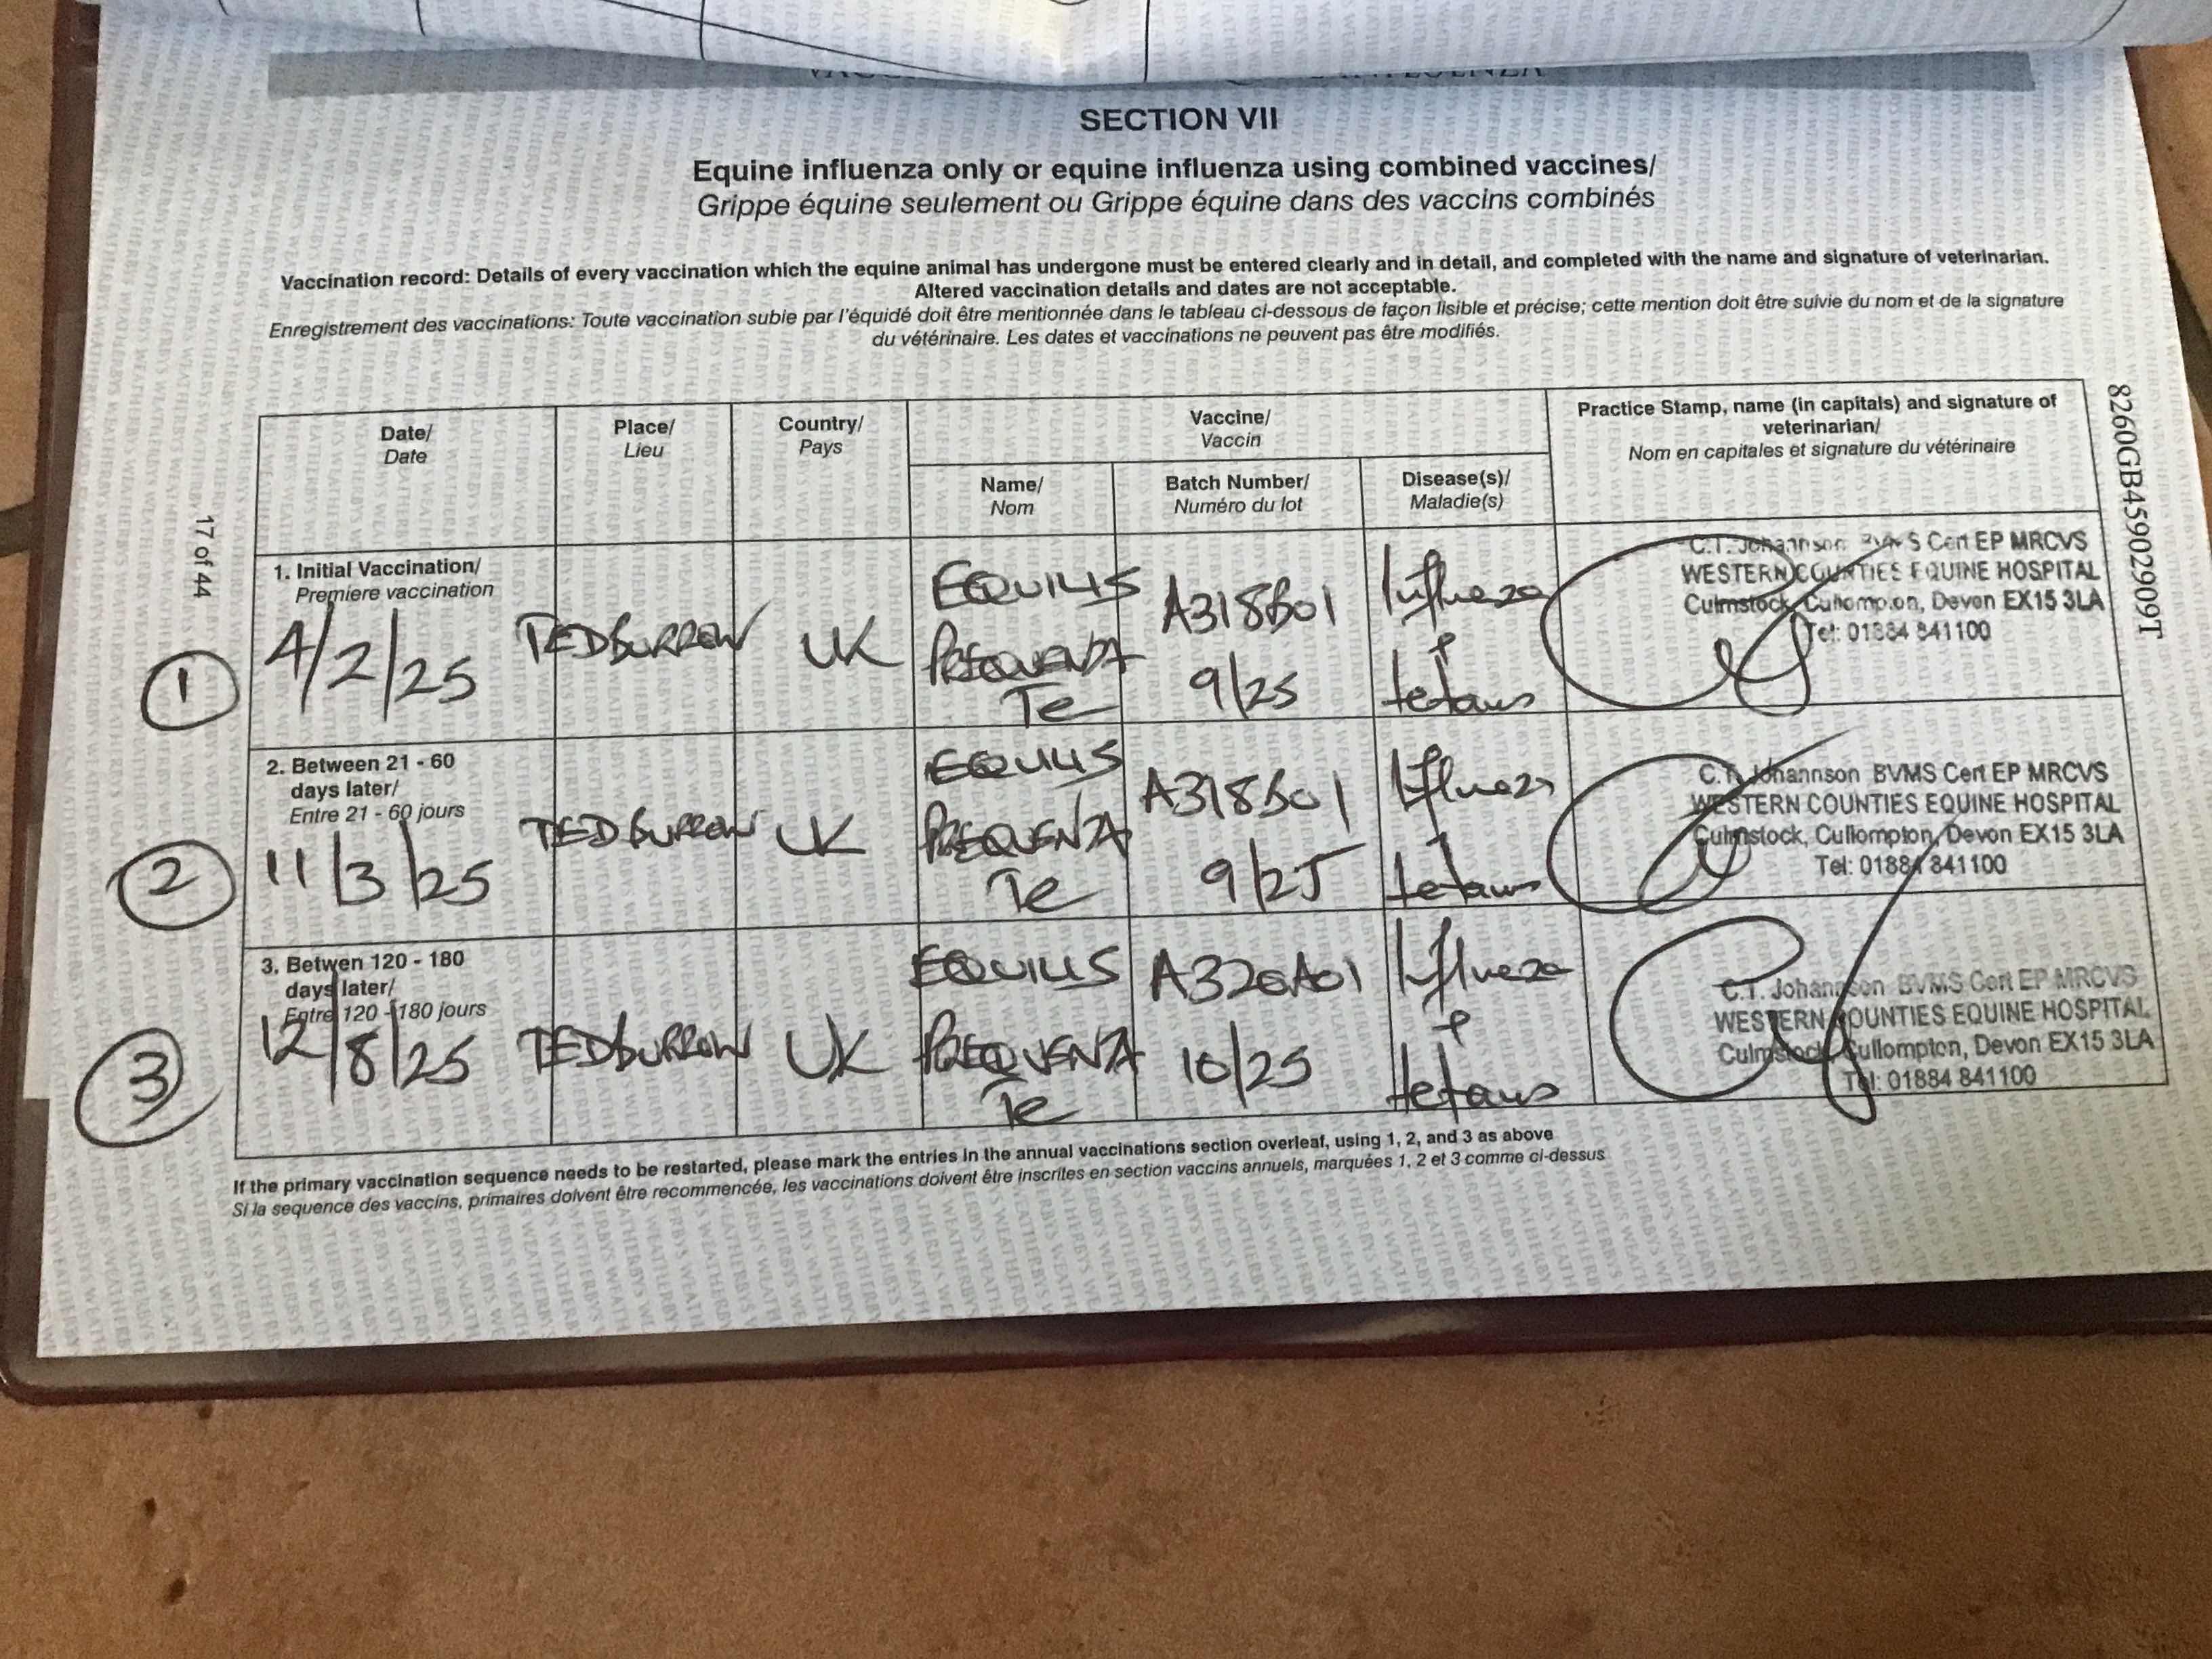 SECTION VII
Equine influenza only or equine influenza using combined vaccines/
Grippe équine seulement ou Grippe équine dans des vaccins combinés
Vaccination record: Details of every vaccination which the equine animal has undergone must be entered clearly and in detail, and completed with the name and signature of veterinarian.
Altered vaccination details and dates are not acceptable.
Enregistrement des vaccinations: Toute vaccination subie par l'équidé doit être mentionnée dans le tableau ci-dessous de façon lisible et précise; cette mention doit être suivie du nom et de la signature
du vétérinaire. Les dates et vaccinations ne peuvent pas être modifiés.
Date/
Date
Place/
Lieu
Country/
Pays
Vaccine/
Vaccin
Name/
Nom
Batch Number/
Numéro du lot
Disease(s)/
Maladie(s)
Practice Stamp, name (in capitals) and signature of
veterinarian/
Nom en capitales et signature du vétérinaire
8260GB45902909T
17 of 44
1. Initial Vaccination/
Premiere vaccination
1
4/2/25
TEDBURROW
UK
EQUILIS
PREQUENZA
Te
A318B01
9/25
Influenza
+
tetanus
C.T. Johannson BVMS Cert EP MRCVS
WESTERN COUNTIES EQUINE HOSPITAL
Culmstock, Cullompton, Devon EX15 3LA
Tel: 01884 841100
2. Between 21 - 60
days later/
Entre 21 - 60 jours
2
11/3/25
TEDBURROW
UK
EQUILIS
PREQUENZA
Te
A318B01
9/25
Influenza
+
tetanus
C.T. Johannson BVMS Cert EP MRCVS
WESTERN COUNTIES EQUINE HOSPITAL
Culmstock, Cullompton, Devon EX15 3LA
Tel: 01884 841100
3. Betwen 120 - 180
days later/
Entre 120 - 180 jours
3
12/8/25
TEDBURROW
UK
EQUILIS
PREQUENZA
Te
A320A01
10/25
Influenza
+
tetanus
C.T. Johannson BVMS Cert EP MRCVS
WESTERN COUNTIES EQUINE HOSPITAL
Culmstock, Cullompton, Devon EX15 3LA
Tel: 01884 841100
If the primary vaccination sequence needs to be restarted, please mark the entries in the annual vaccinations section overleaf, using 1, 2, and 3 as above
Si la sequence des vaccins, primaires doivent être recommencée, les vaccinations doivent être inscrites en section vaccins annuels, marquées 1, 2 et 3 comme ci-dessus